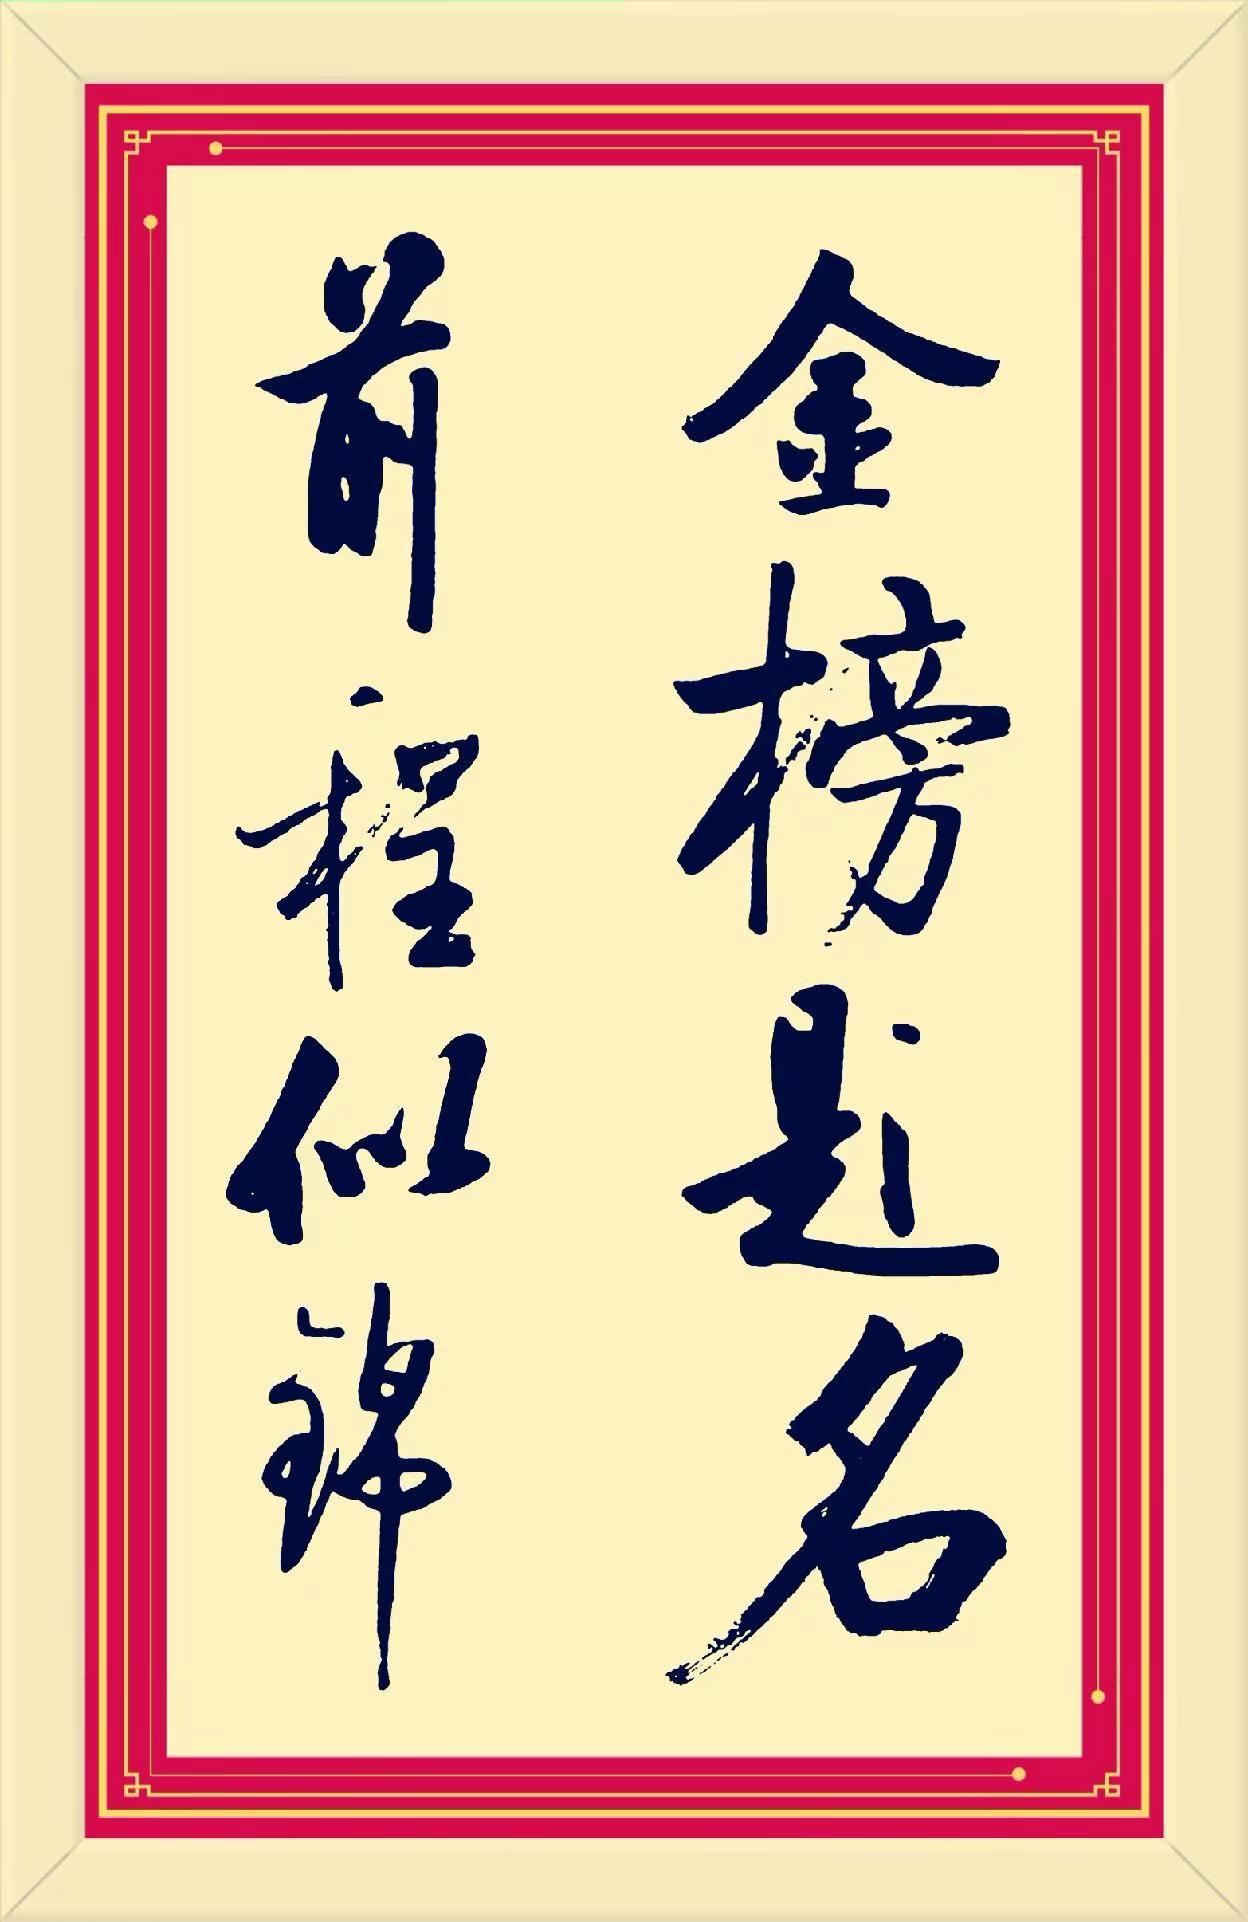 金榜题名
前程似锦